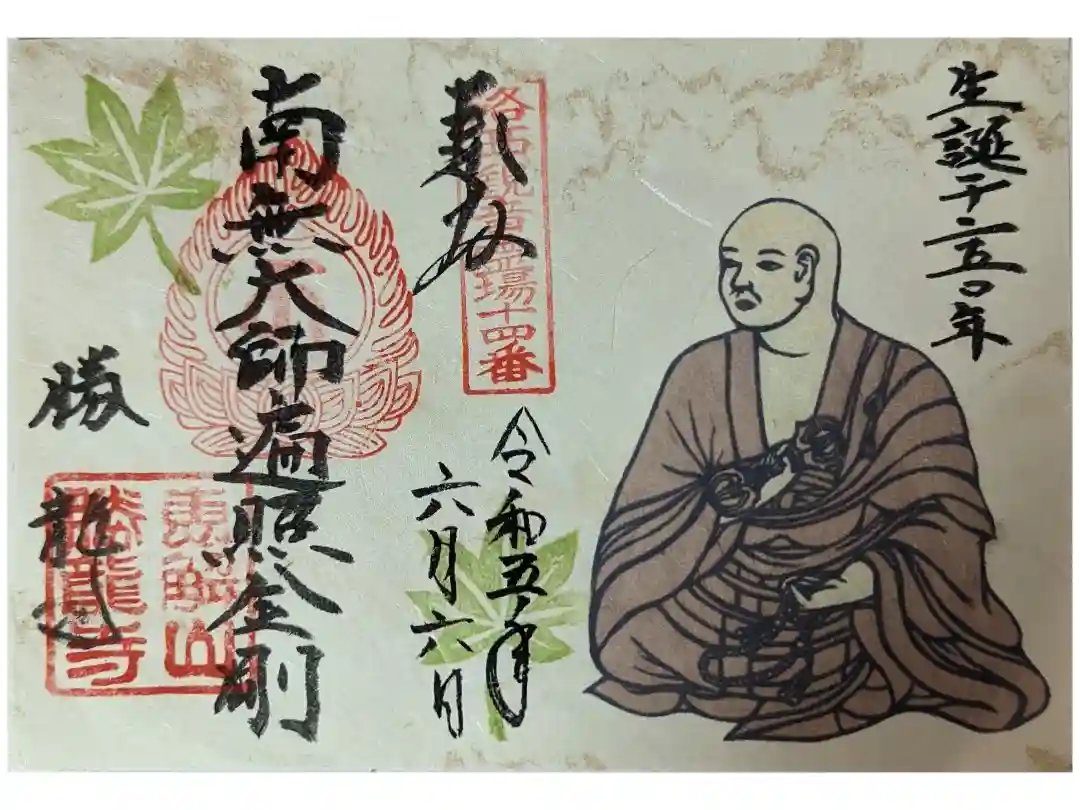 生誕千二百五〇年
奉拝
洛西観音霊場十四番
令和五年
六月六日
南無大師遍照金剛
勝龍寺
恵解山
勝龍寺